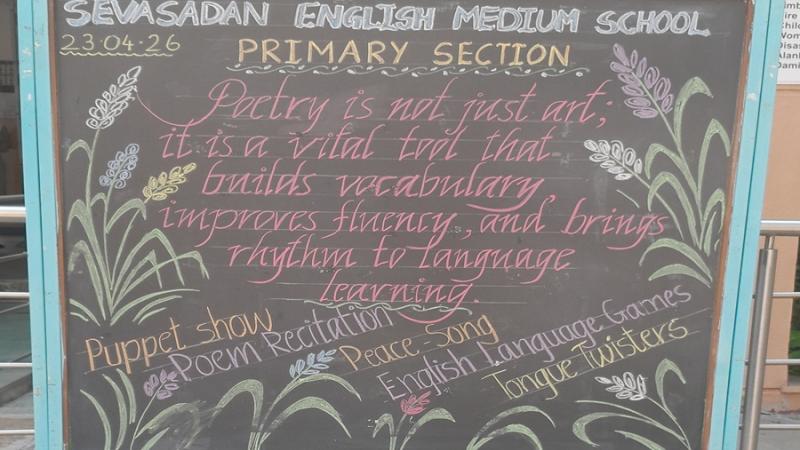 SEVASADAN ENGLISH MEDIUM SCHOOL
23.04.26
PRIMARY SECTION
Poetry is not just art;
it is a vital tool that
builds vocabulary,
improves fluency, and brings
rhythm to language
learning.
Puppet show
Poem Recitation
Peace-Song
English Language Games
Tongue Twisters